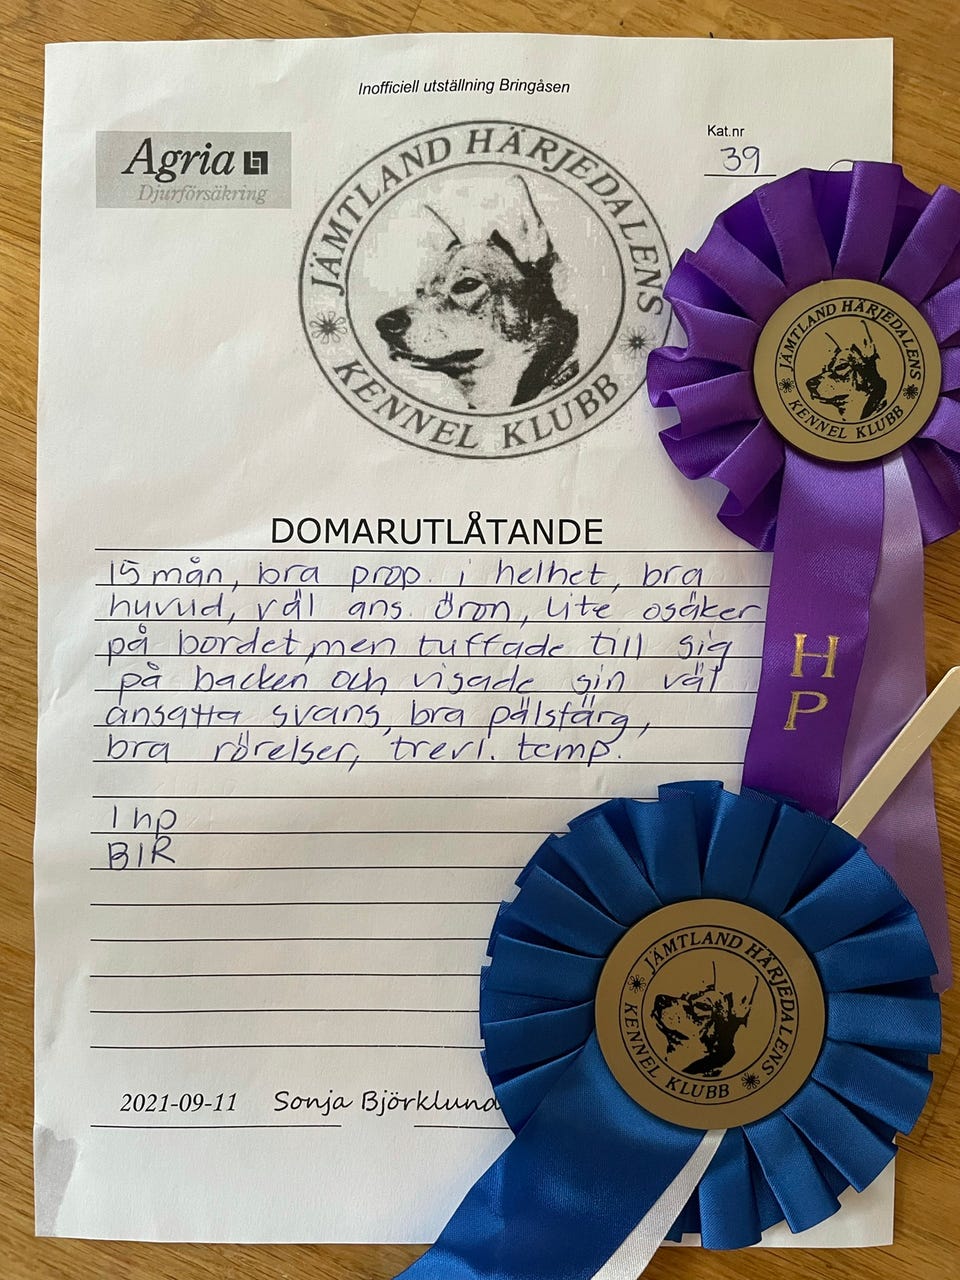 Inofficiell utställning Bringåsen
Agria
Djurförsäkring
Kat.nr
39
JÄMTLAND HÄRJEDALENS
KENNEL KLUBB
JÄMTLAND HÄRJEDALENS
KENNEL KLUBB
DOMARUTLÅTANDE
15 mån, bra prop. i helhet, bra
huvud, väl ans. öron, lite osäker
på bordet, men tuffade till sig
på backen och visade sin väl
ansatta svans, bra pälsfärg,
bra rörelser, trevl. temp.
H
P
1 hp
BIR
JÄMTLAND HÄRJEDALENS
KENNEL KLUBB
2021-09-11 Sonja Björklund